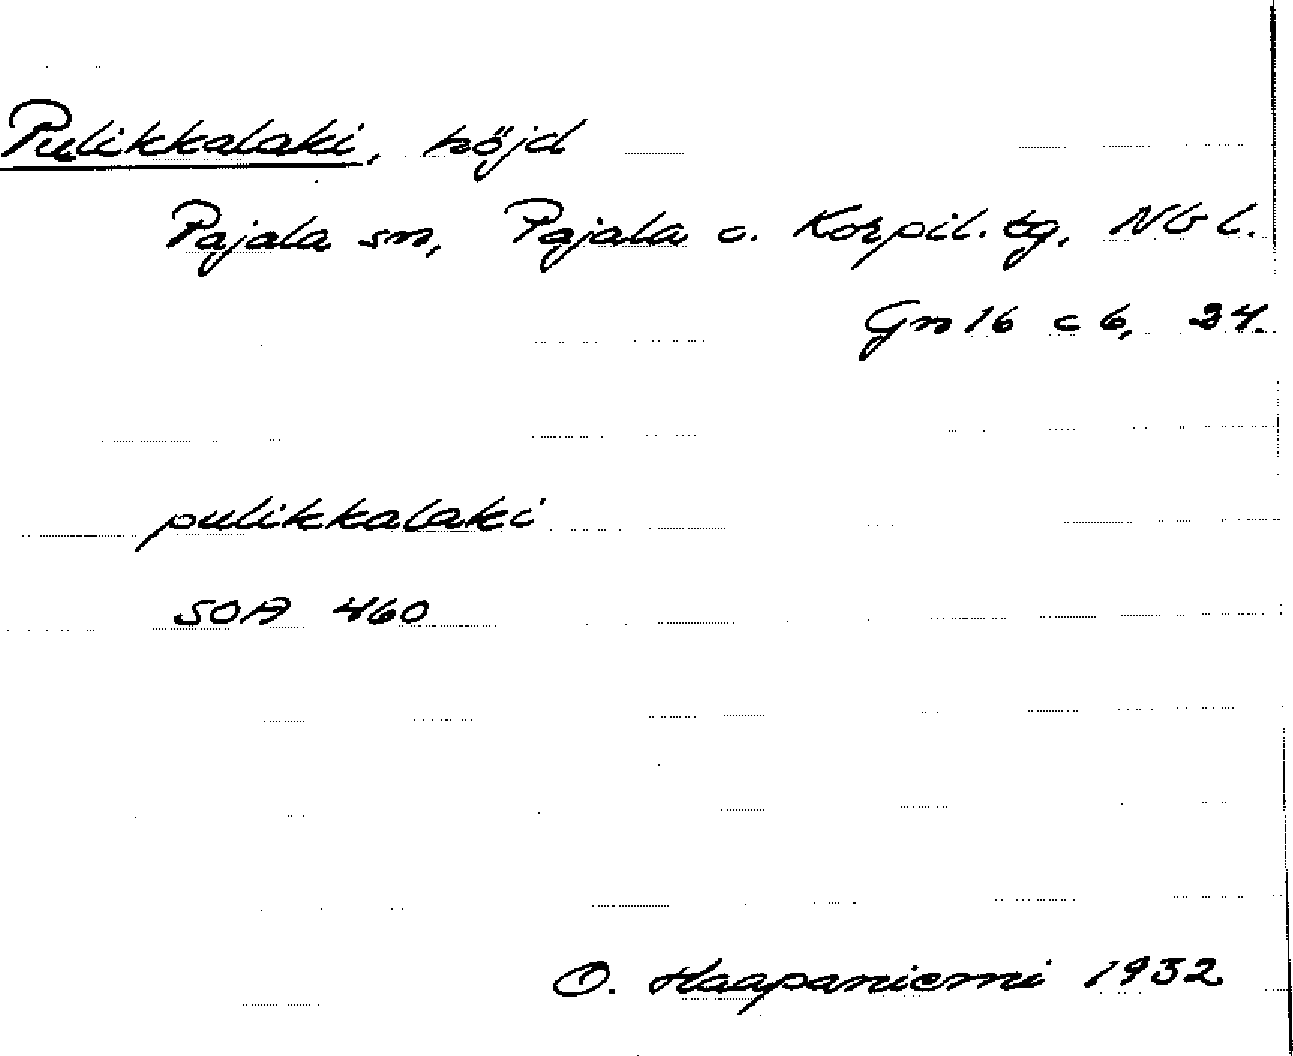 Pulikkalaki, höjd
Pajala sn, Pajala o. Korpil. tg, Nb l.
Gn 16 c b, 24.
pulikkalaki
SOA 460
O. Haapaniemi 1932